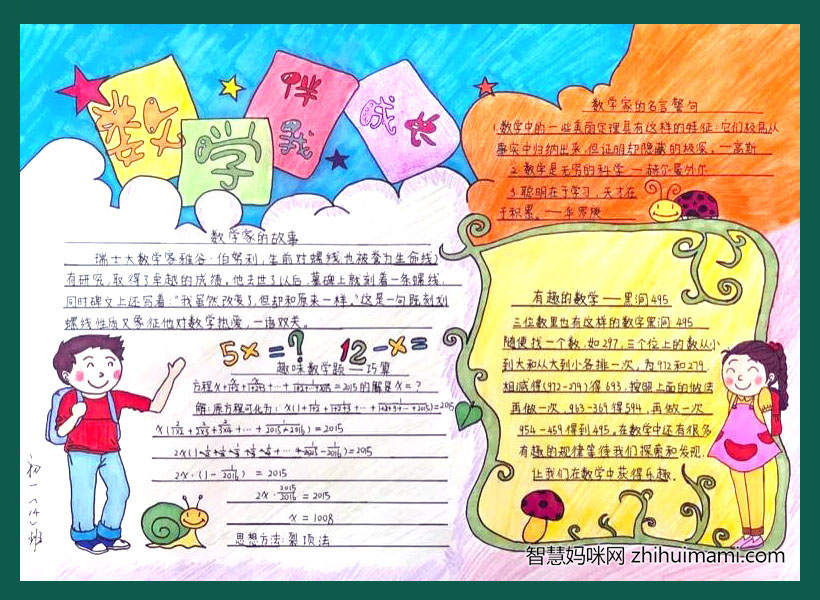 数学
伴我
成长
数学家的名言警句
1.数学中的一些美丽定理具有这样的特征:它们极易从
事实中归纳出来,但证明却隐藏的极深。—高斯
2.数学是无穷的科学 — 赫尔曼外尔
3.聪明在于学习,天才在
于积累。——华罗庚
数学家的故事
瑞士大数学家雅谷·伯努利,生前对螺线(也被誉为生命线)
有研究,取得了卓越的成绩。他去世了以后,墓碑上就刻着一条螺线,
同时碑文上还写着:“我虽然改变了,但却和原来一样。”这是一句既刻划
螺线性质又象征他对数学热爱,一语双关。
5x=?
12-x=
趣味数学题——巧算
=2015的解是x=?
解:原方程可化为:
=2015
2x·(1-1/2016) =2015
2x·2015/2016 =2015
x=1008
思想方法:裂项法
有趣的数学——黑洞495
三位数里也有这样的数字黑洞 495
随便找一个数,如297,三个位上的数从小
到大和从大到小各排一次,为972和279,
相减得(972-279)得693,按照上面的做法
再做一次,963-369得594,再做一次
954-459得到495,在数学中还有很多
有趣的规律等待我们探索和发现,
让我们在数学中获得乐趣。
初一(14)班
智慧妈咪网 zhihuimami.com